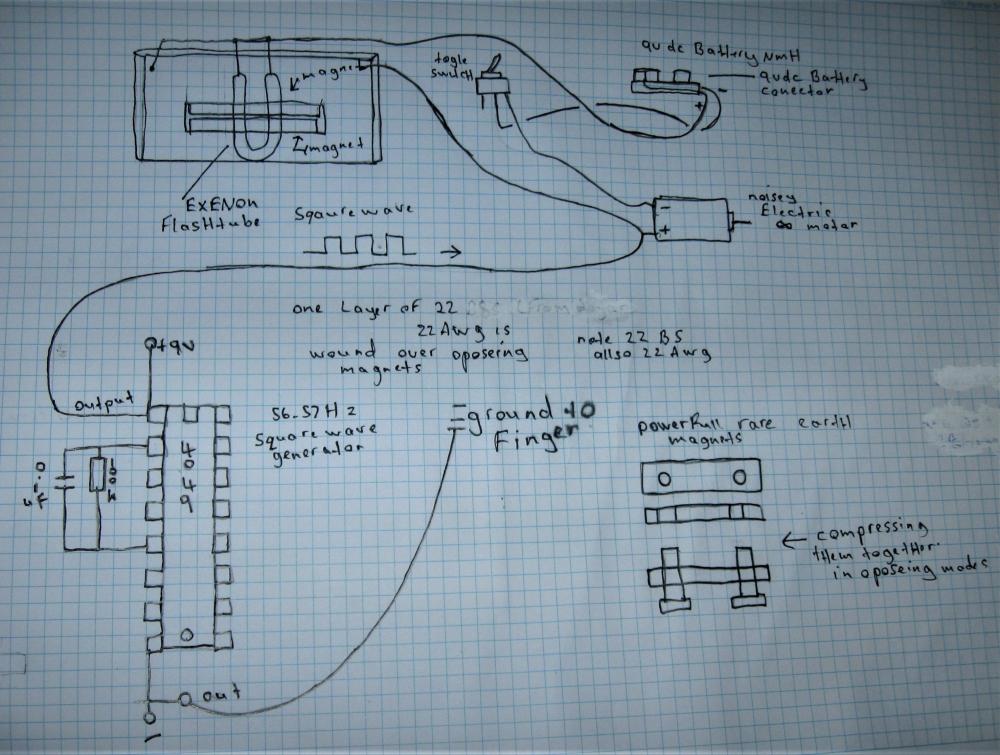 qudc Battery NmH
qudc Battery
conector
-
+
togle
switch
magnet
magnet
EXENon
FlasHtube
Sqaure wave
noisey
Electric
motar
-
+
one Layer of 22
22 Awg is
wound over oposering
magnets
note 22 BS
allso 22 Awg
+9v
output
56-57Hz
Square wave
generator
ground to
Finger
powerfull rare earth
magnets
compressing
them together
in oposeing modes
100K
4049
out